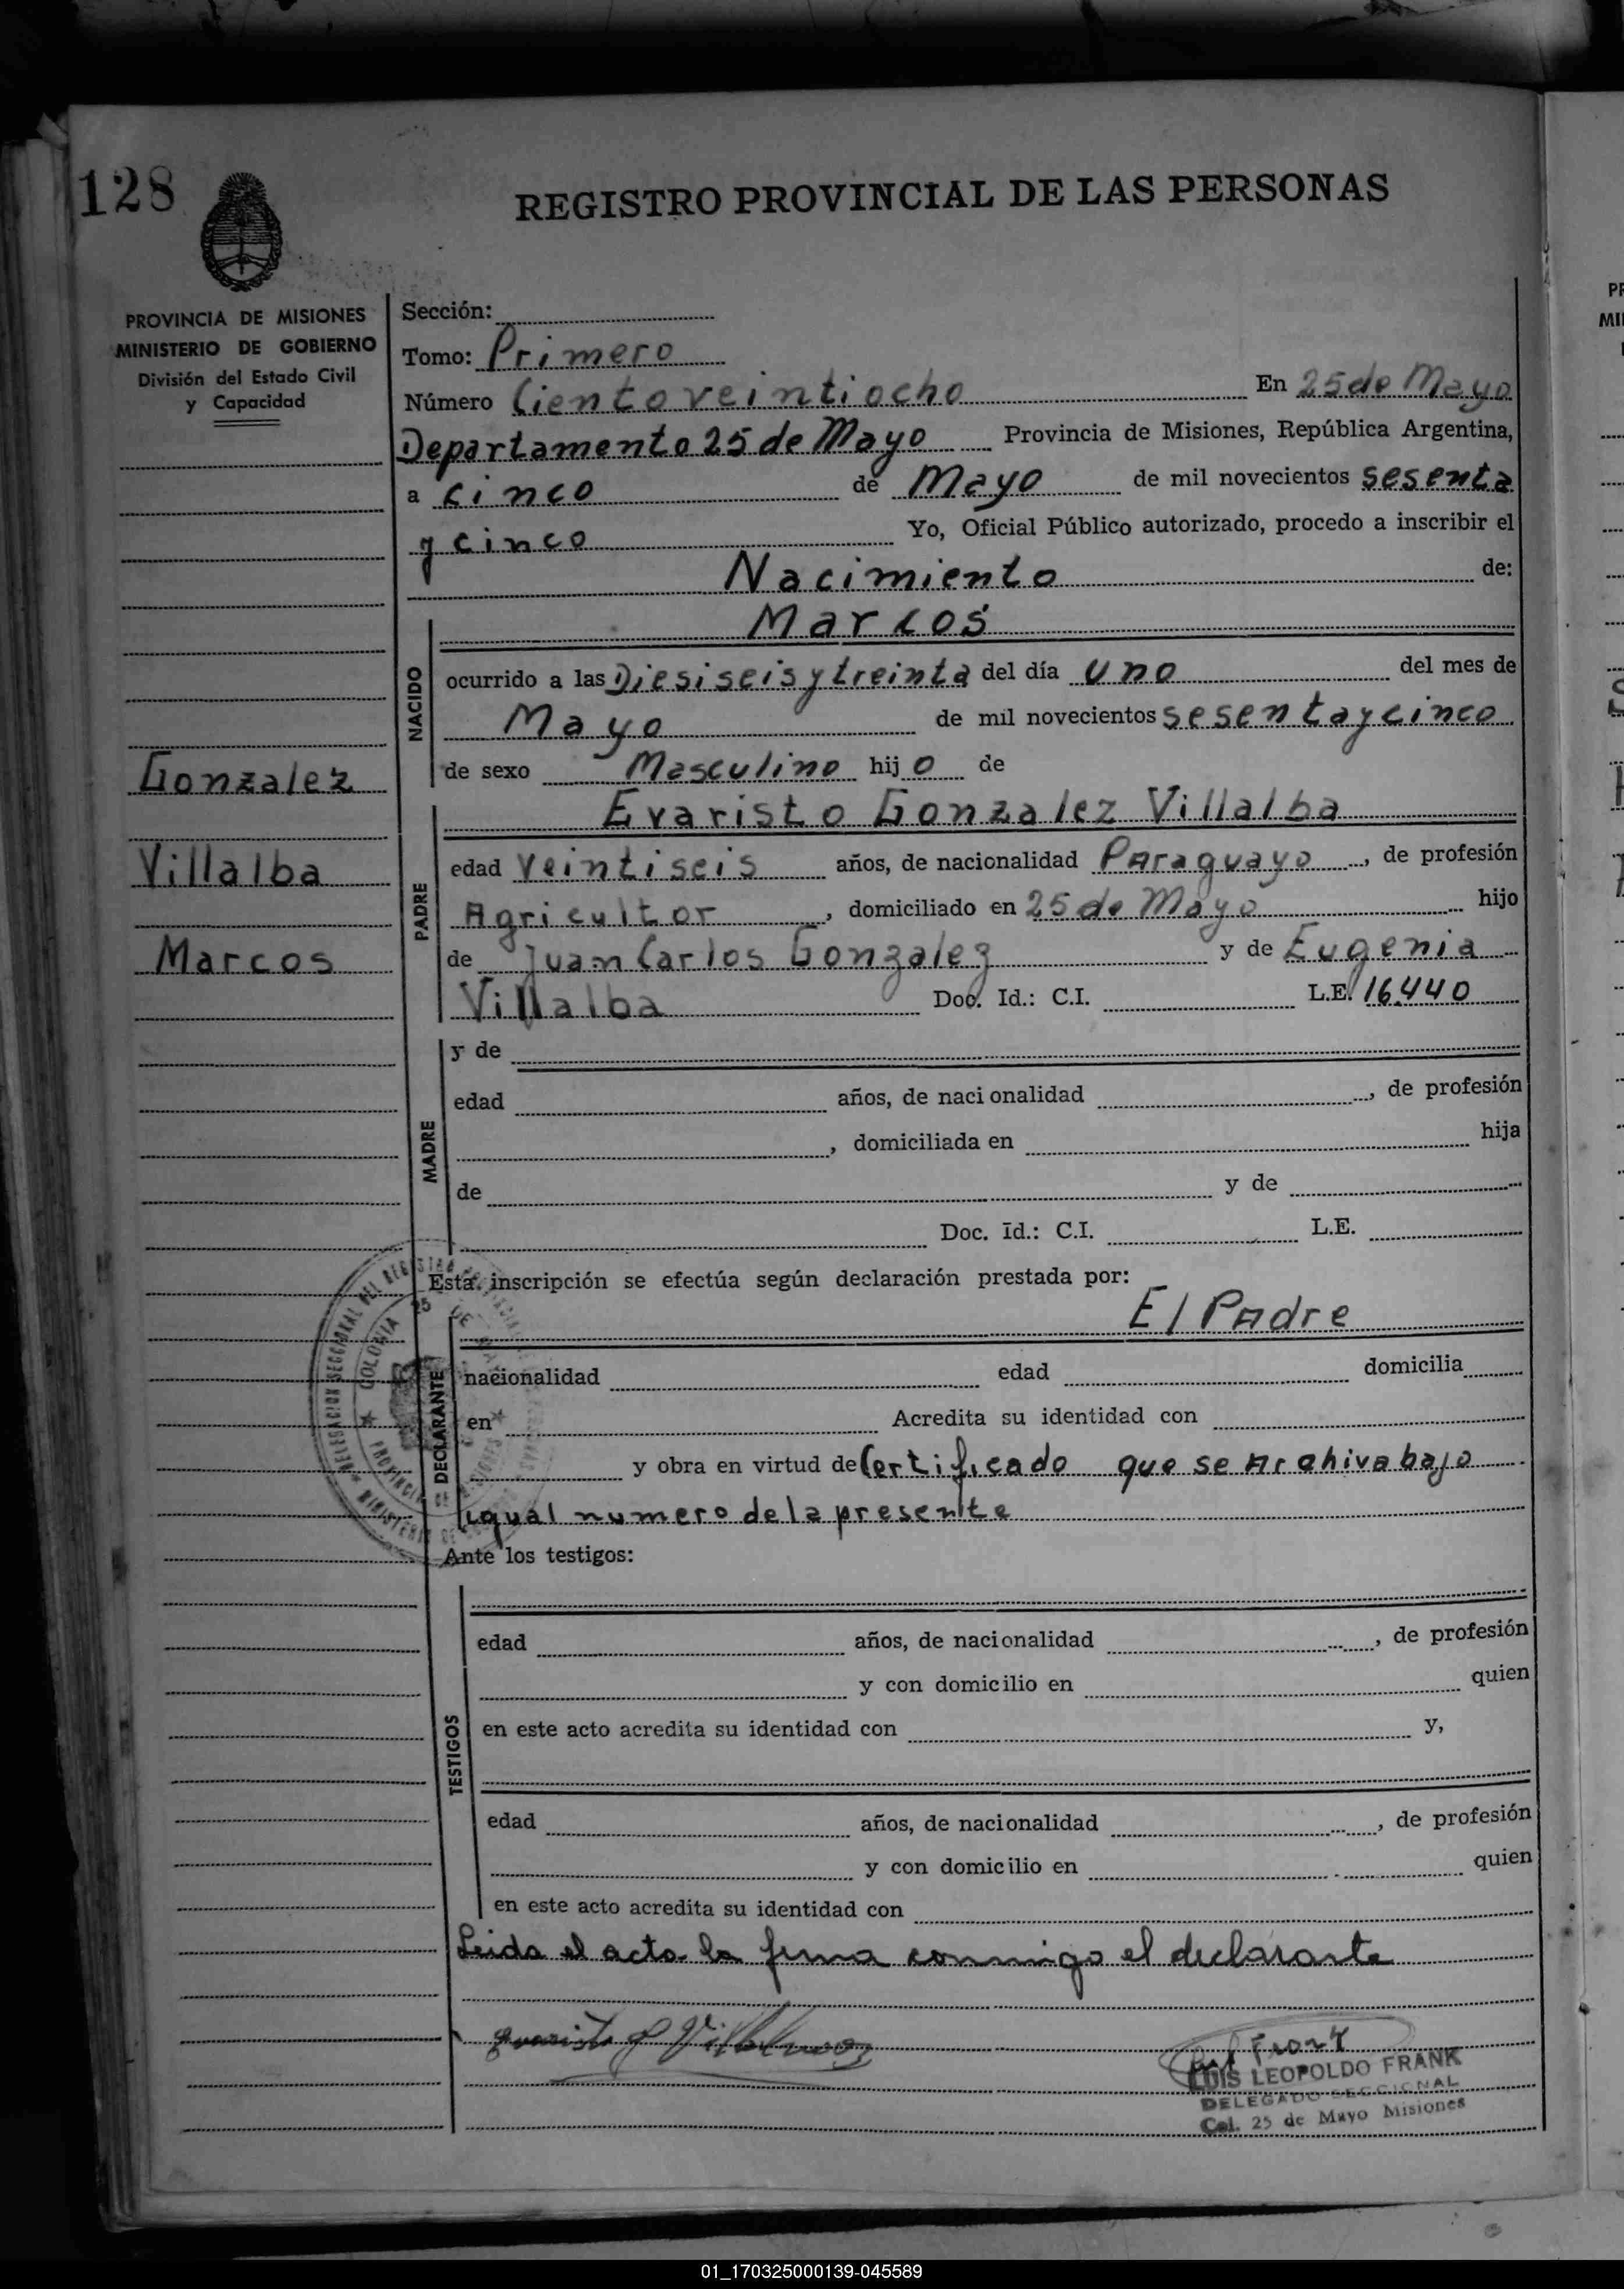 128
REGISTRO PROVINCIAL DE LAS PERSONAS
PROVINCIA DE MISIONES
MINISTERIO DE GOBIERNO
División del Estado Civil
y Capacidad
Gonzalez
Villalba
Marcos
Sección:
Tomo: Primero
Número Ciento veintiocho En 25 de Mayo
Departamento 25 de Mayo Provincia de Misiones, República Argentina,
a cinco de Mayo de mil novecientos sesenta
y cinco Yo, Oficial Público autorizado, procedo a inscribir el
Nacimiento de:
NACIDO
Marcos
ocurrido a las Diesiseis y treinta del día uno del mes de
Mayo de mil novecientos sesenta y cinco
de sexo Masculino hijo de
PADRE
Evaristo Gonzalez Villalba
edad veintiseis años, de nacionalidad Paraguayo, de profesión
Agricultor, domiciliado en 25 de Mayo hijo
de Juan Carlos Gonzalez y de Eugenia
Villalba Doc. Id.: C.I. L.E. 16.440
MADRE
y de
edad años, de nacionalidad , de profesión
, domiciliada en hija
de y de
Doc. Id.: C.I. L.E.
Esta inscripción se efectúa según declaración prestada por:
DECLARANTE
El Padre
nacionalidad edad domicilia
en Acredita su identidad con
y obra en virtud de Certificado que se Archiva bajo
igual numero de la presente
Ante los testigos:
TESTIGOS
edad años, de nacionalidad , de profesión
y con domicilio en quien
en este acto acredita su identidad con y,
edad años, de nacionalidad , de profesión
y con domicilio en quien
en este acto acredita su identidad con
Leida el acta la firma conmigo el declarante
LUIS LEOPOLDO FRANK
DELEGADO SECCIONAL
Col. 25 de Mayo Misiones
01_170325000139-045589